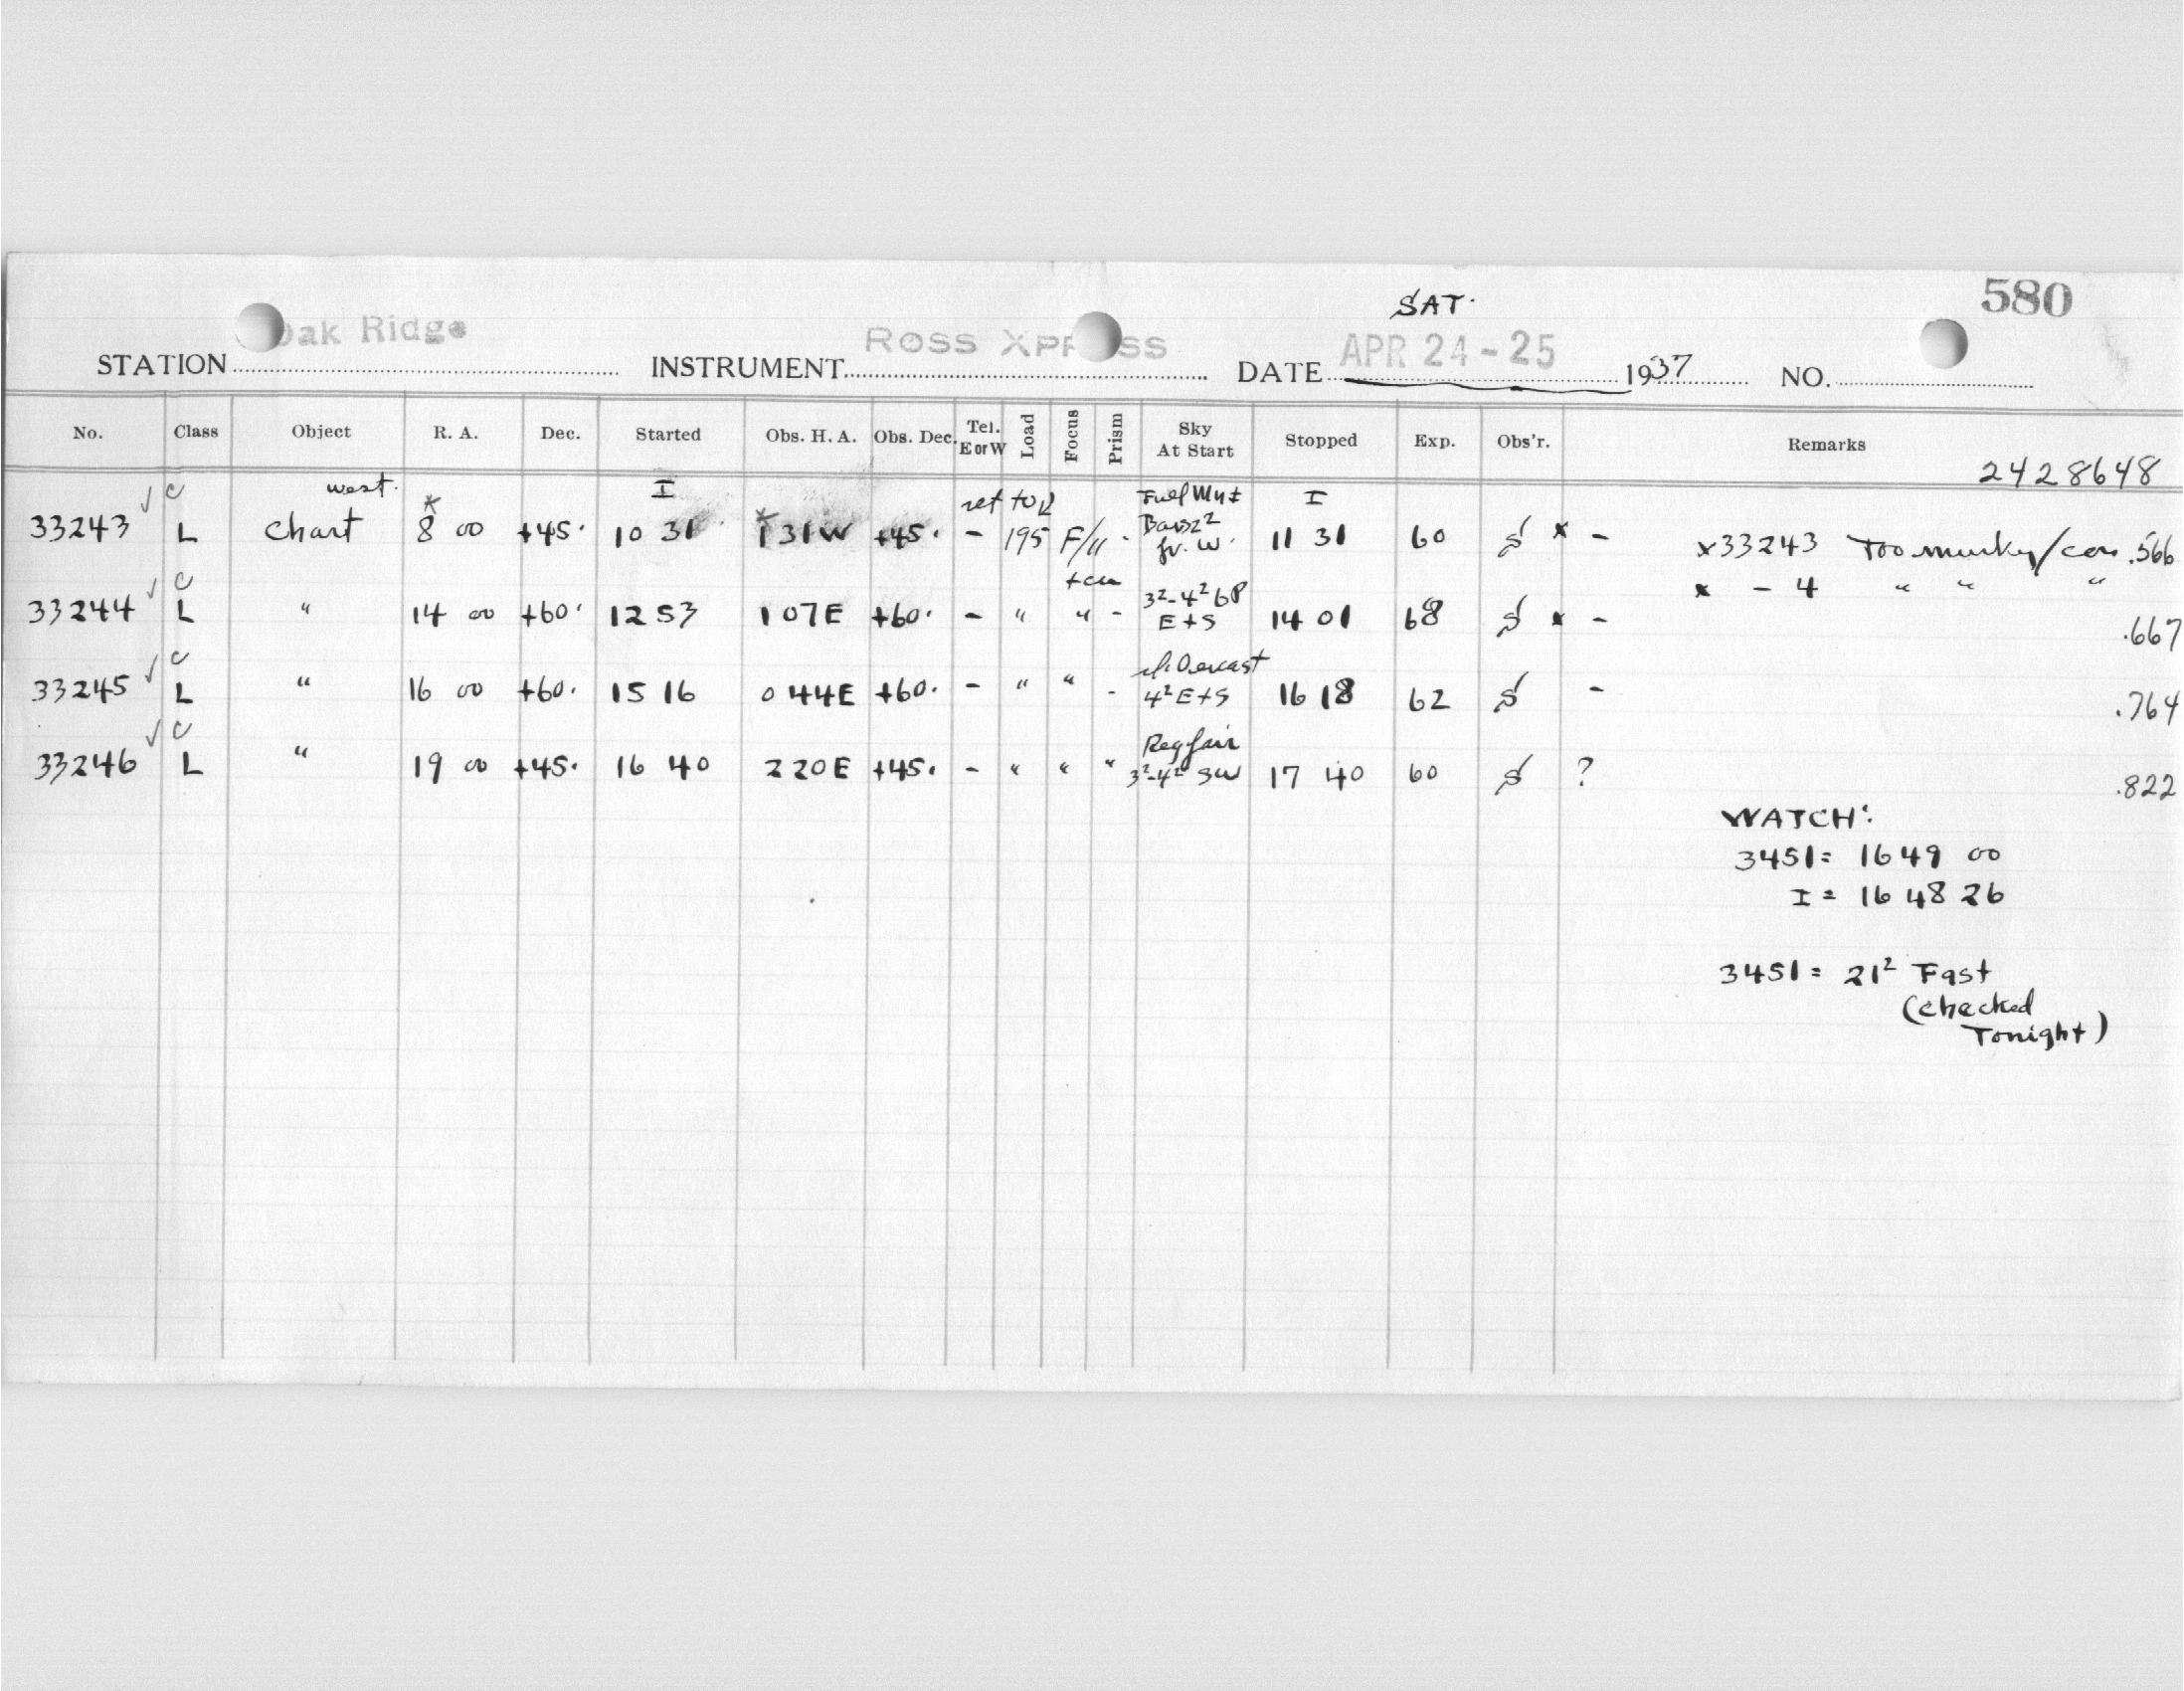 580
SAT.
STATION Oak Ridge INSTRUMENT ROSS XPRESS DATE APR 24-25 1937 NO.
No. Class Object R. A. Dec. Started Obs. H. A. Obs. Dec. Tel. E or W Load Focus Prism Sky At Start Stopped Exp. Obs'r. Remarks
2428648
C west. I set to I
33243 L Chart 8 00 +45. 10 31 1 31W +45. - 195 F/11 - fr. W. 11 31 60 S x - x33243 Too murky/ .566
x - 4 " " "
C
33244 L " 14 00 +60. 12 53 1 07E +60. - " " - 3²-4² E+S 14 01 68 S x - .667
C Overcast
33245 L " 16 00 +60. 15 16 0 44E +60. - " " - 4² E+S 16 18 62 S - .764
C fair
33246 L " 19 00 +45. 16 40 2 20E +45. - " " " 3²-4² SW 17 40 60 S ? .822
WATCH:
3451 = 16 49 00
I = 16 48 26
3451 = 21² Fast
(checked
Tonight)